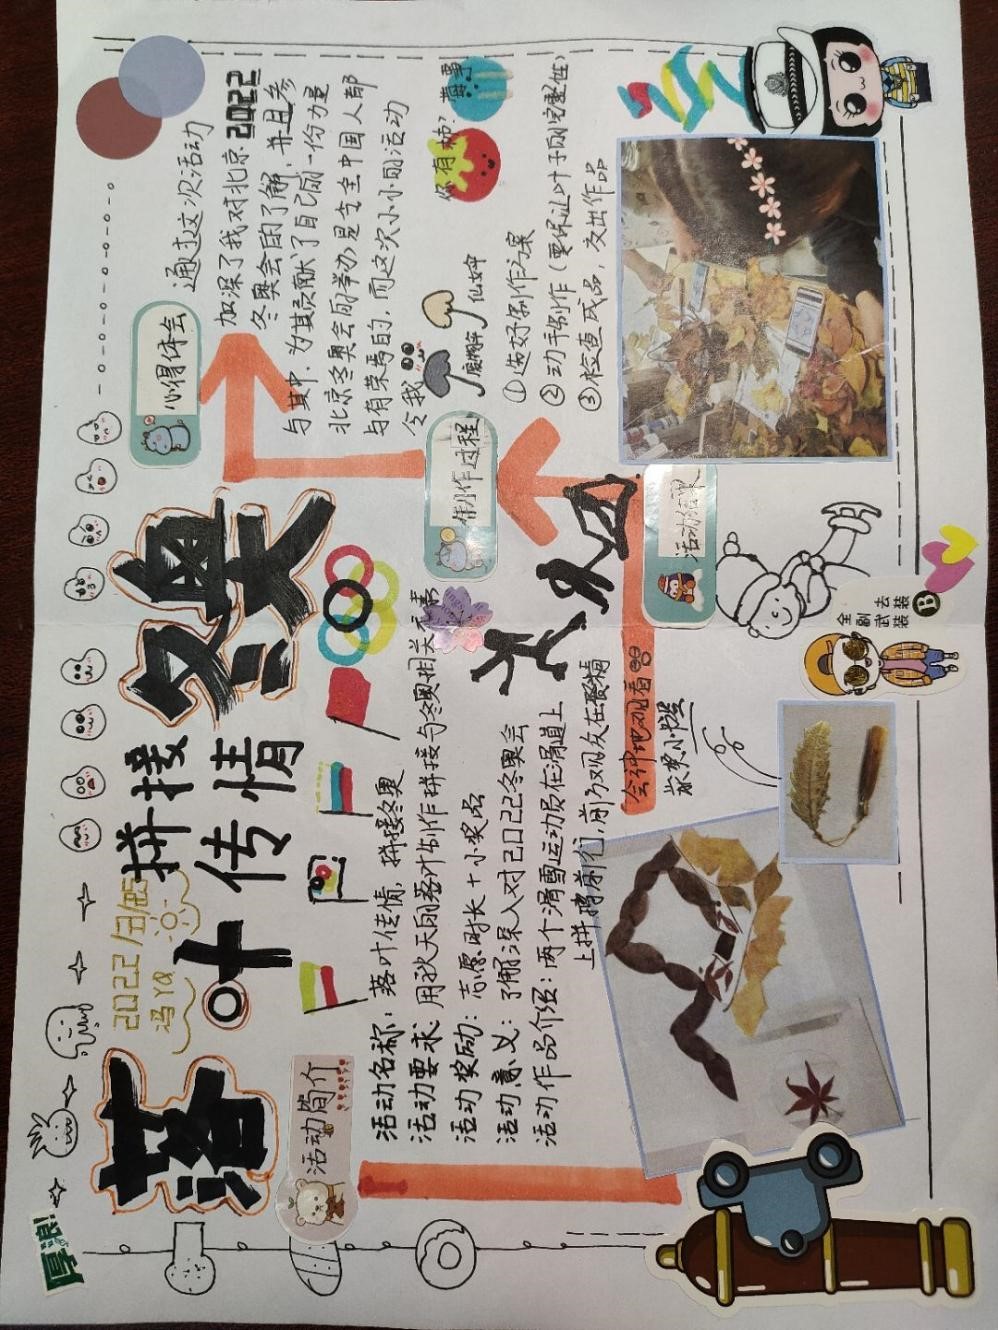 落叶传情
拼接冬奥
活动简介
活动名称：落叶传情，拼接冬奥
活动要求：用秋天的落叶制作拼接与冬奥相关画
活动奖励：志愿时长+小奖品
活动意义：了解深入对2022冬奥会
活动作品介绍：两个滑雪运动员在滑道上
上拼搏前行，前方观众在聚精
会神地观看
活动结果
制作过程
①选好制作方案
②动手制作（要保证叶子的完整性）
③检查成品，交出作品
心得体会
通过这次活动
加深了我对北京2022
冬奥会的了解，并且参
与其中，为其贡献了自己的一份力量
北京冬奥会的举办是令全中国人都
与有荣焉的，而这次小小的活动
令我
仙女
全副武装
去装B
厚浪！